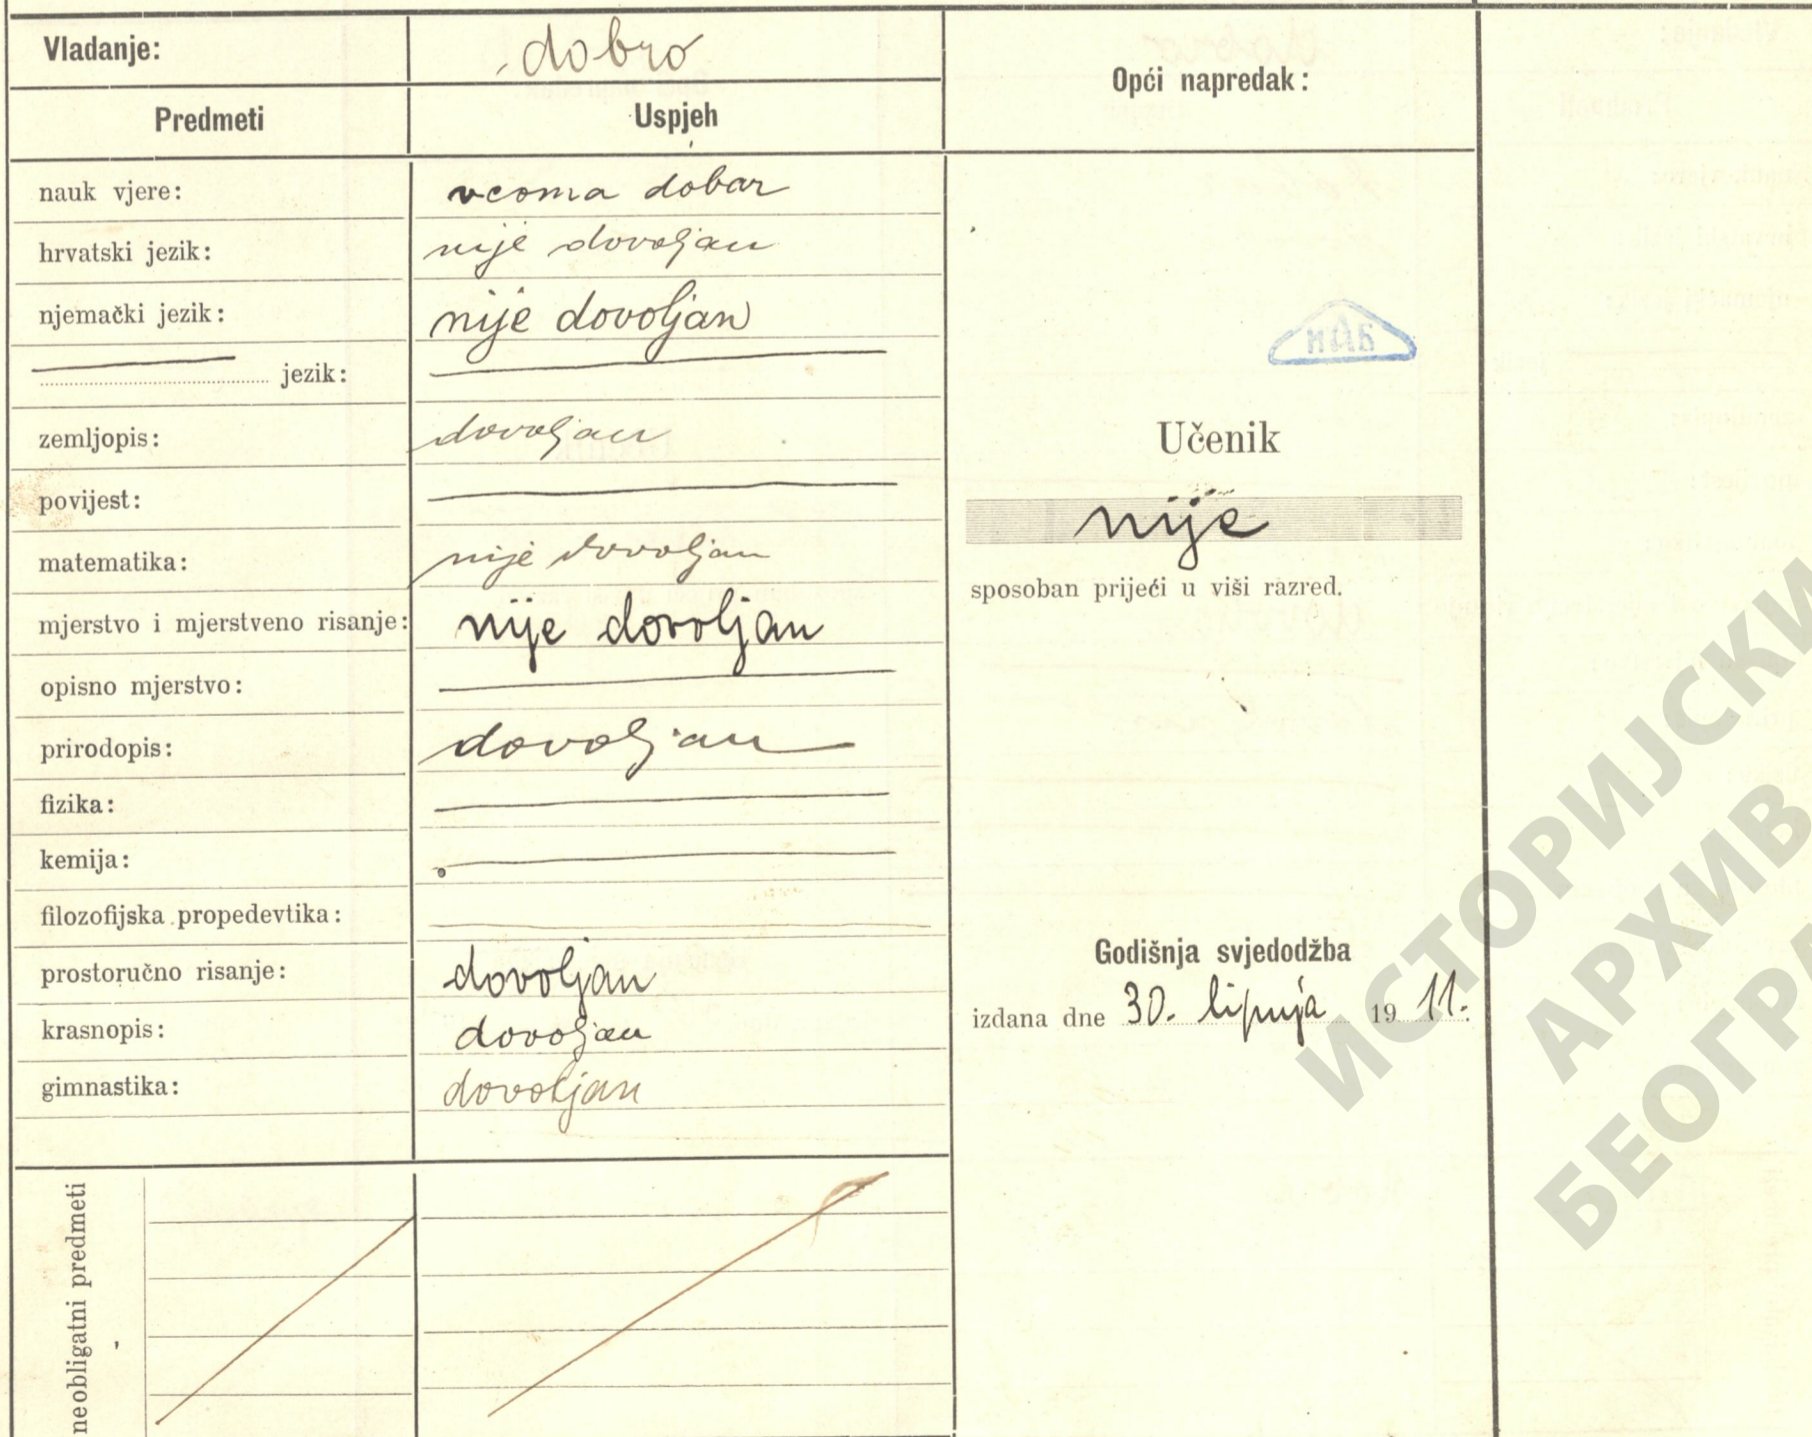 Vladanje: dobro
Opći napredak:
Predmeti Uspjeh
nauk vjere: veoma dobar
hrvatski jezik: nije dovoljan
njemački jezik: nije dovoljan
jezik:
zemljopis: dovoljan
povijest:
matematika: nije dovoljan
mjerstvo i mjerstveno risanje: nije dovoljan
opisno mjerstvo:
prirodopis: dovoljan
fizika:
kemija:
filozofijska propedevtika:
prostoručno risanje: dovoljan
krasnopis: dovoljan
gimnastika: dovoljan
neobligatni predmeti
ИАБ
Učenik
nije
sposoban prijeći u viši razred.
Godišnja svjedodžba
izdana dne 30. lipnja 1911.
ИСТОРИЈСКИ
АРХИВ
БЕОГРА